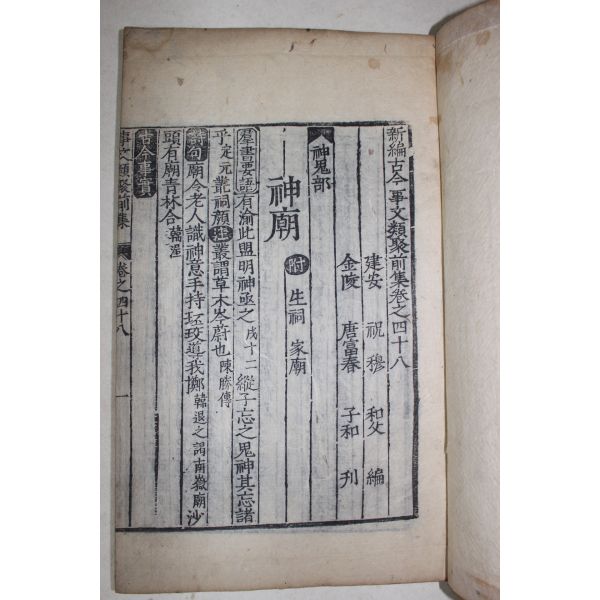 新編古今事文類聚前集卷之四十八
建安 祝穆 和父 編
金陵 唐富春 子和 刋
神鬼部
神廟 附 生祠 家廟
羣書要語 有渝此盟明神亟之 縱子忘之鬼神其忘諸
乎 定元 叢祠顔 注 叢謂草木岑蔚也 陳勝傳
詩句 廟令老人識神意手持珓導我擲 韓退之謁南嶽廟 沙
頭有廟青林合 韓
古今事實
事文類聚前集 卷之四十八 一